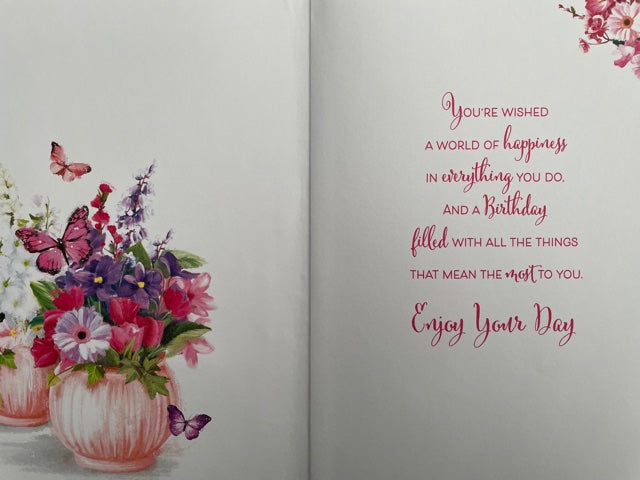 You're wished
a world of happiness
in everything you do.
And a Birthday
filled with all the things
that mean the most to you.
Enjoy Your Day